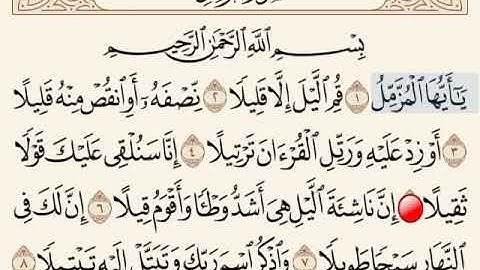 بِسْمِ اللَّهِ الرَّحْمَٰنِ الرَّحِيمِ
يَٰٓأَيُّهَا الْمُزَّمِّلُ ١ قُمِ الَّيْلَ إِلَّا قَلِيلًا ٢ نِّصْفَهُۥٓ أَوِ انقُصْ مِنْهُ قَلِيلًا
٣ أَوْ زِدْ عَلَيْهِ وَرَتِّلِ الْقُرْءَانَ تَرْتِيلًا ٤ إِنَّا سَنُلْقِى عَلَيْكَ قَوْلًا
ثَقِيلًا إِنَّ نَاشِئَةَ الَّيْلِ هِىَ أَشَدُّ وَطْـًٔا وَأَقْوَمُ قِيلًا ٦ إِنَّ لَكَ فِى
النَّهَارِ سَبْحًا طَوِيلًا ٧ وَاذْكُرِ اسْمَ رَبِّكَ وَتَبَتَّلْ إِلَيْهِ تَبْتِيلًا ٨